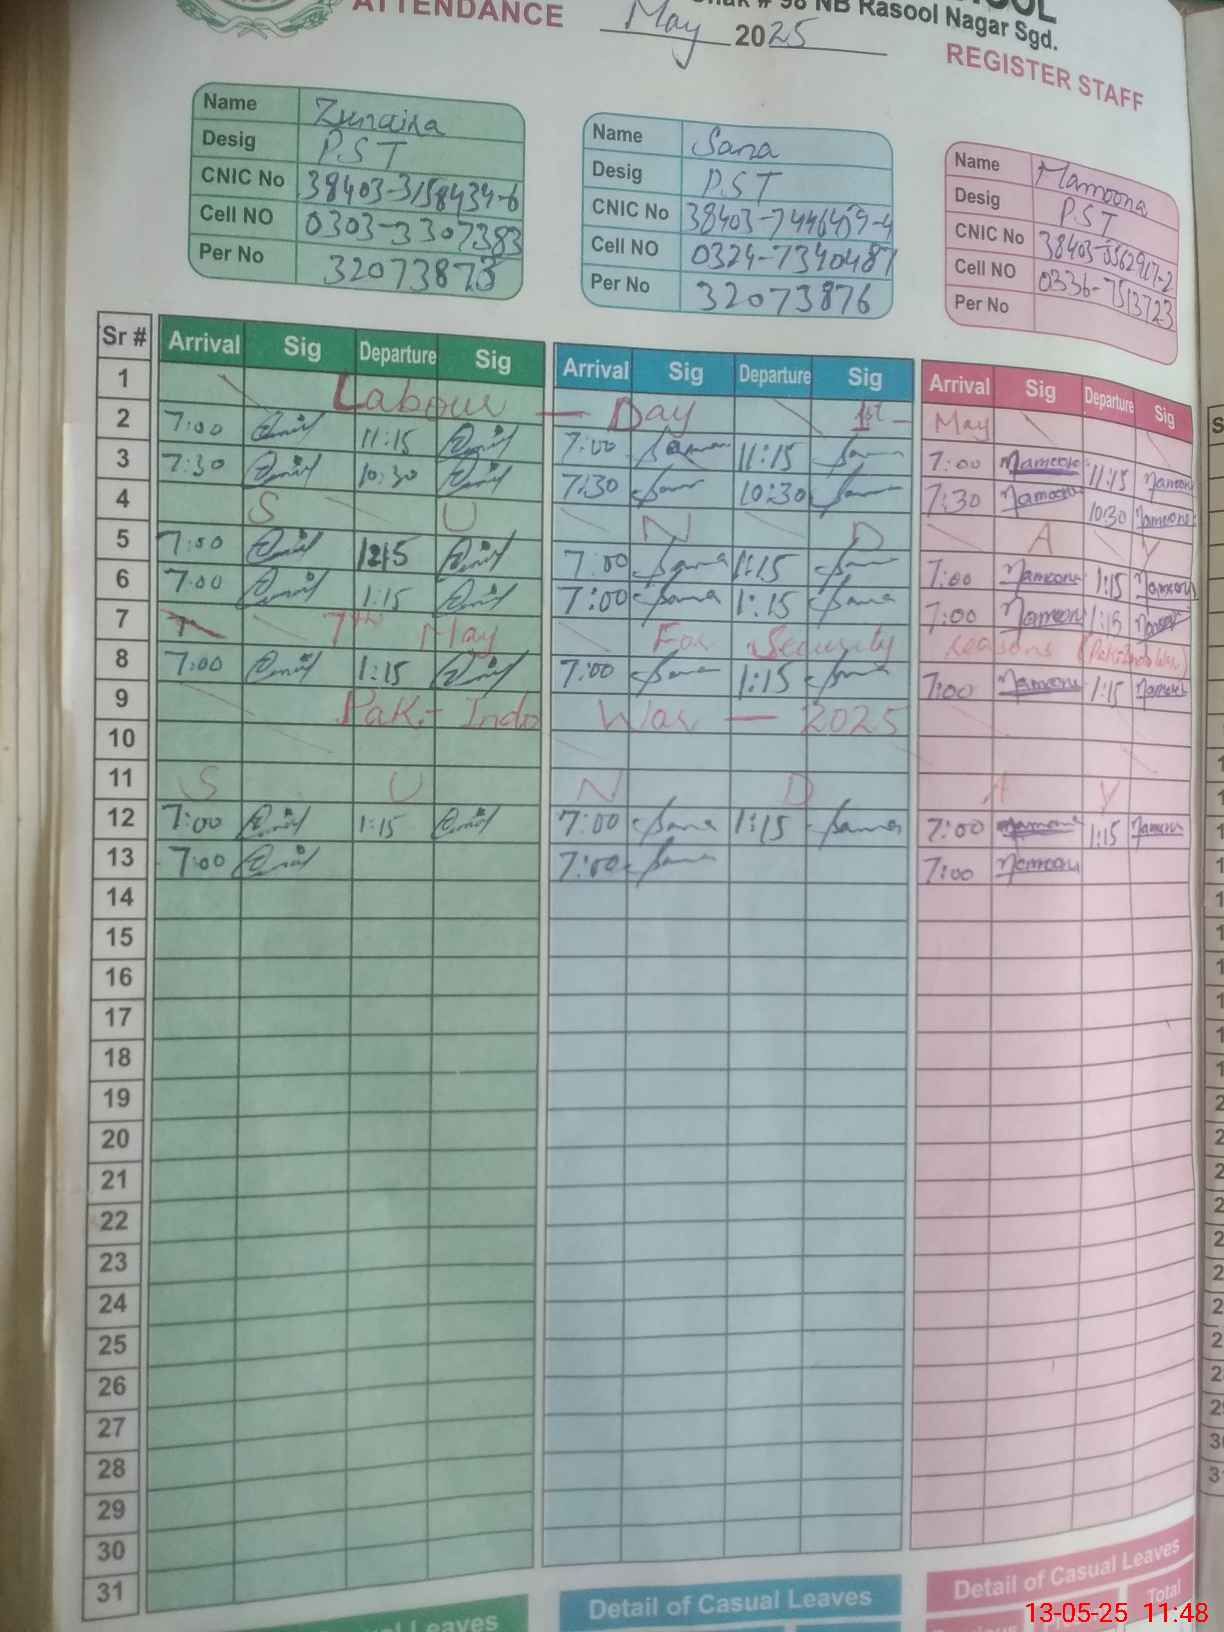 ATTENDANCE May 2025 # 98 NB Rasool Nagar Sgd.
REGISTER STAFF
Name Zunaira
Desig P.S.T
CNIC No 38403-3158434-6
Cell NO 0303-3307383
Per No 32073873
Name Sana
Desig P.S.T
CNIC No
Cell NO 0324-7340487
Per No 32073876
Name Mamoona
Desig P.S.T
CNIC No
Cell NO 0336-7513723
Per No
Sr # Arrival Sig Departure Sig Arrival Sig Departure Sig Arrival Sig Departure Sig
1 Labour — Day 1st - May
2 7:00 11:15 7:00 Sana 11:15 Sana 7:00 Mamoona 11:15 Mamoona
3 7:30 10:30 7:30 Sana 10:30 Sana 7:30 Mamoona 10:30 Mamoona
4 S U N D A Y
5 7:00 7:00 Sana 1:15 Sana 7:00 Mamoona 1:15 Mamoona
6 7:00 1:15 7:00 Sana 1:15 Sana 7:00 Mamoona 1:15 Mamoona
7 7th May For Security reasons
8 7:00 1:15 7:00 Sana 1:15 Sana 7:00 Mamoona 1:15 Mamoona
9 Pak - Indo War — 2025
10
11 S U N D A Y
12 7:00 1:15 7:00 Sana 1:15 Sana 7:00 Mamoona 1:15 Mamoona
13 7:00 7:00 Sana 7:00 Mamoona
14
15
16
17
18
19
20
21
22
23
24
25
26
27
28
29
30
31
Leaves Detail of Casual Leaves Detail of Casual Leaves
Total
13-05-25 11:48